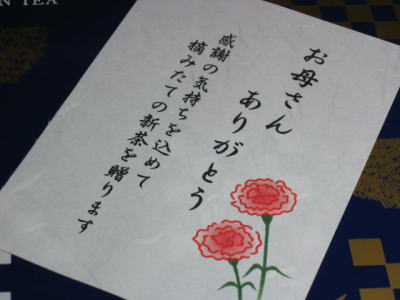 お母さん
ありがとう
感謝の気持ちを込めて
摘みたての新茶を贈ります
N TEA